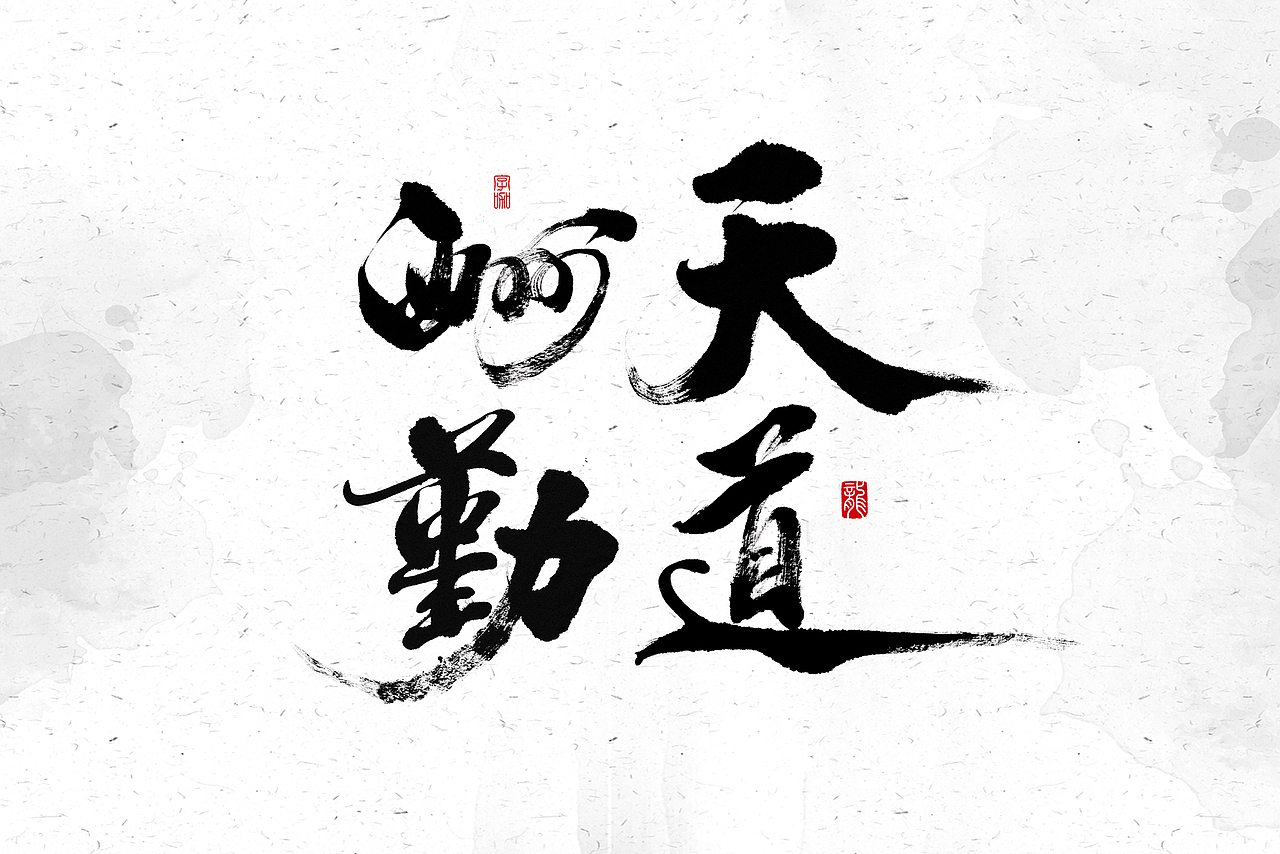 天道
酬勤
龍